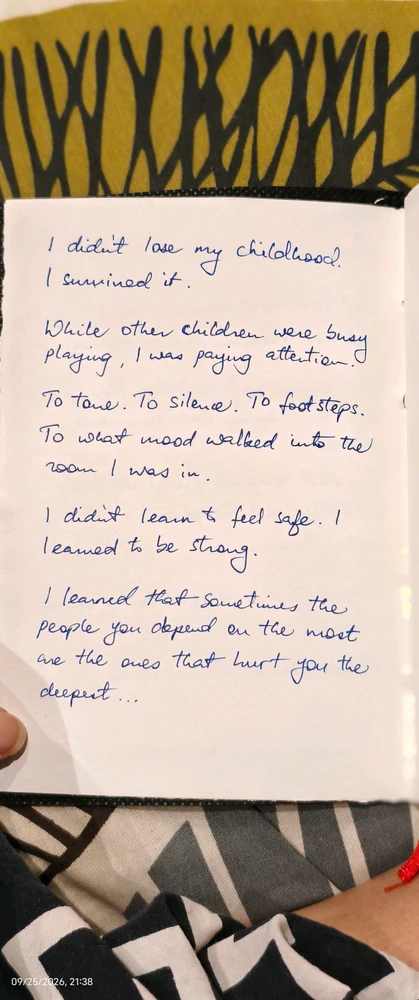 I didn't lose my childhood.
I survived it.
While other children were busy
playing, I was paying attention.
To tone. To silence. To footsteps.
To what mood walked into the
room I was in.
I didn't learn to feel safe. I
learned to be strong.
I learned that sometimes the
people you depend on the most
are the ones that hurt you the
deepest...
09/25/2026, 21:38